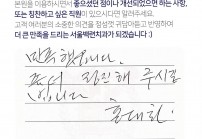 본원을 이용하시면서 좋으셨던 점이나 개선되었으면 하는 사항,
또는 칭찬하고 싶은 직원이 있으시다면 말려주세요.
고객 여러분의 소중한 의견을 정성껏 귀담아듣고 반영하여
더 큰 만족을 드리는 서울백면치과가 되겠습니다 :)
만족해합니다.
친절 해 주시고
입니다